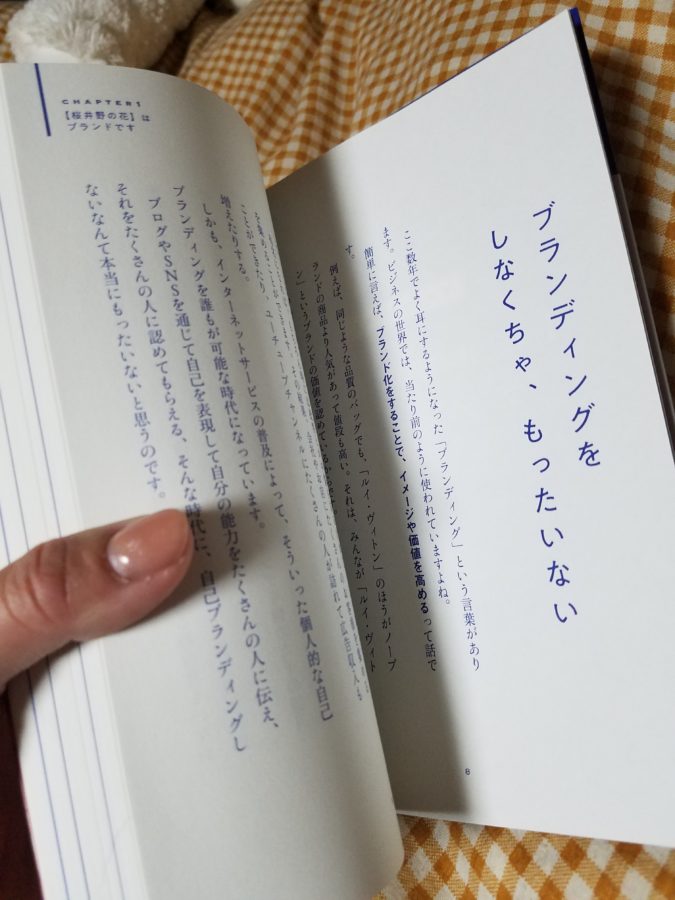 ブランディングを
しなくちゃ、もったいない
ここ数年でよく耳にするようになった「ブランディング」という言葉があり
ます。ビジネスの世界では、当たり前のように使われていますよね。
簡単に言えば、ブランド化をすることで、イメージや価値を高めるって話で
す。
例えば、同じような品質のバッグでも、「ルイ・ヴィトン」のほうがノーブ
ランドの商品より人気があって値段も高い。それは、みんなが「ルイ・ヴィト
ン」というブランドの価値を認めているからです。
8
CHAPTER1
【桜井野の花】は
ブランドです
ことができたり、ユーチューブチャンネルにたくさんの人が訪れて広告収入も
増えたりする。
しかも、インターネットサービスの普及によって、そういった個人的な自己
ブランディングを誰もが可能な時代になっています。
ブログやSNSを通じて自己を表現して自分の能力をたくさんの人に伝え、
それをたくさんの人に認めてもらえる、そんな時代に、自己ブランディングし
ないなんて本当にもったいないと思うのです。